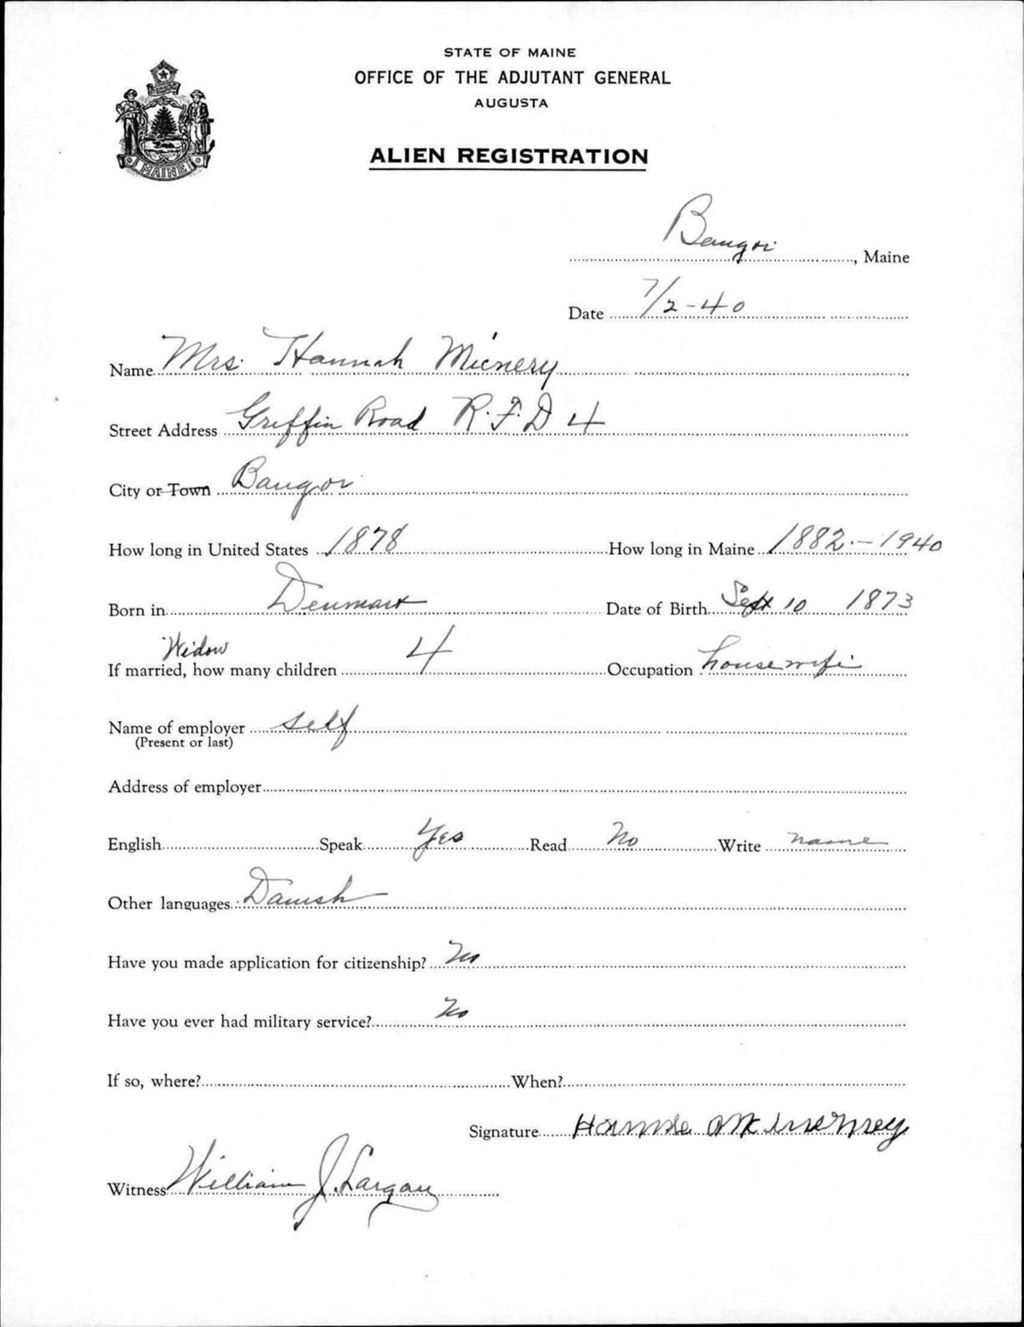 STATE OF MAINE
OFFICE OF THE ADJUTANT GENERAL
AUGUSTA
ALIEN REGISTRATION
MAINE
Bangor, Maine
Date 7/2-40
Name Mrs. Hannah Micnery
Street Address Griffin Road R.F.D 4
City or Town Bangor
How long in United States 1878 How long in Maine 1882-1940
Born in Denmark Date of Birth Sept 10 1873
Widow
If married, how many children 4 Occupation housewife
Name of employer self
(Present or last)
Address of employer
English Speak Yes Read No Write name
Other languages Danish
Have you made application for citizenship? No
Have you ever had military service? No
If so, where? When?
Signature Hannae McInerney
Witness William J. Largay